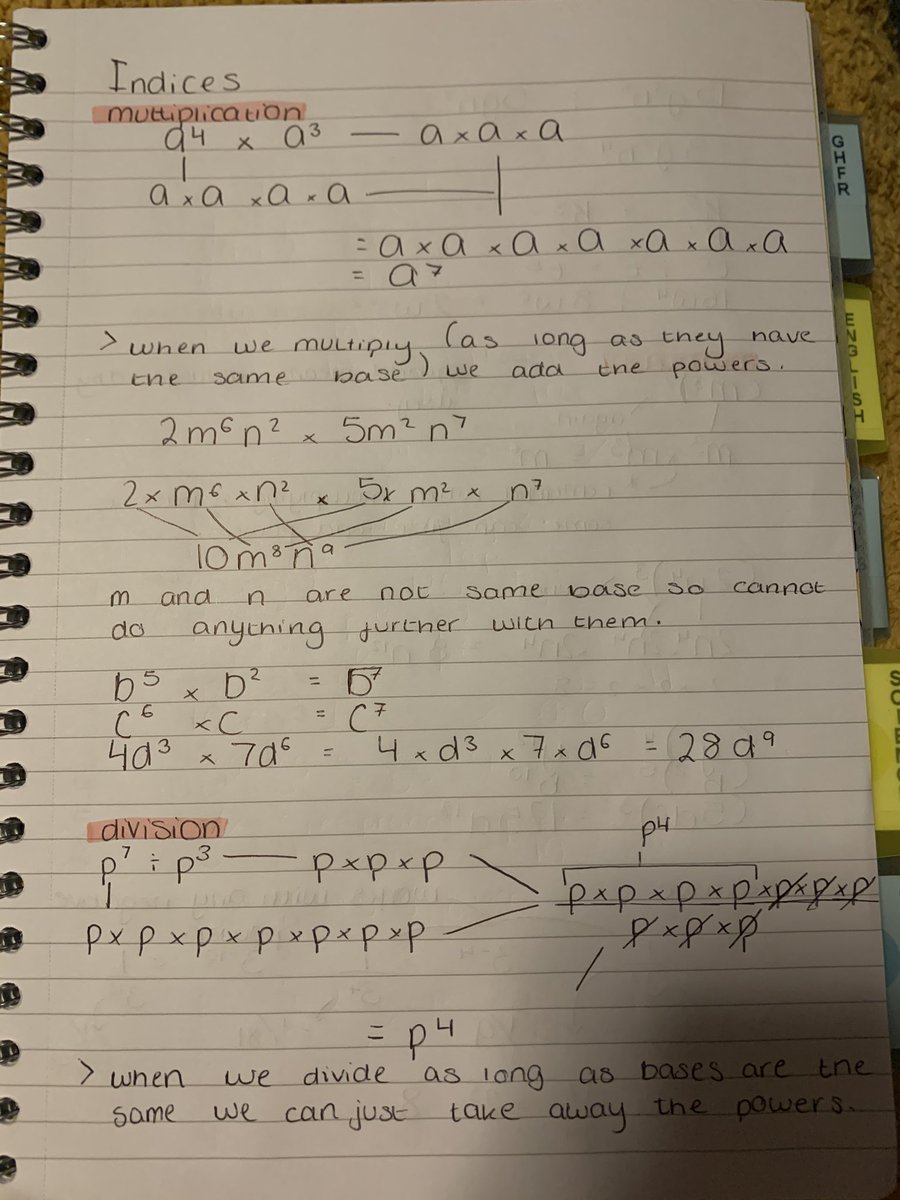 Indices
multiplication
a⁴ × a³ — a × a × a
a × a × a × a
= a × a × a × a × a × a × a
= a⁷
> when we multiply (as long as they have
the same base) we add the powers.
2m⁶n² × 5m²n⁷
2 × m⁶ × n² × 5 × m² × n⁷
10m⁸n⁹
m and n are not same base so cannot
do anything further with them.
b⁵ × b² = b⁷
c⁶ × c = c⁷
4d³ × 7d⁶ = 4 × d³ × 7 × d⁶ = 28d⁹
division
p⁷ ÷ p³ — p × p × p
p × p × p × p × p × p × p
p⁴
p × p × p × p × p × p × p
p × p × p
= p⁴
> when we divide as long as bases are the
same we can just take away the powers.
GHFR
ENGLISH